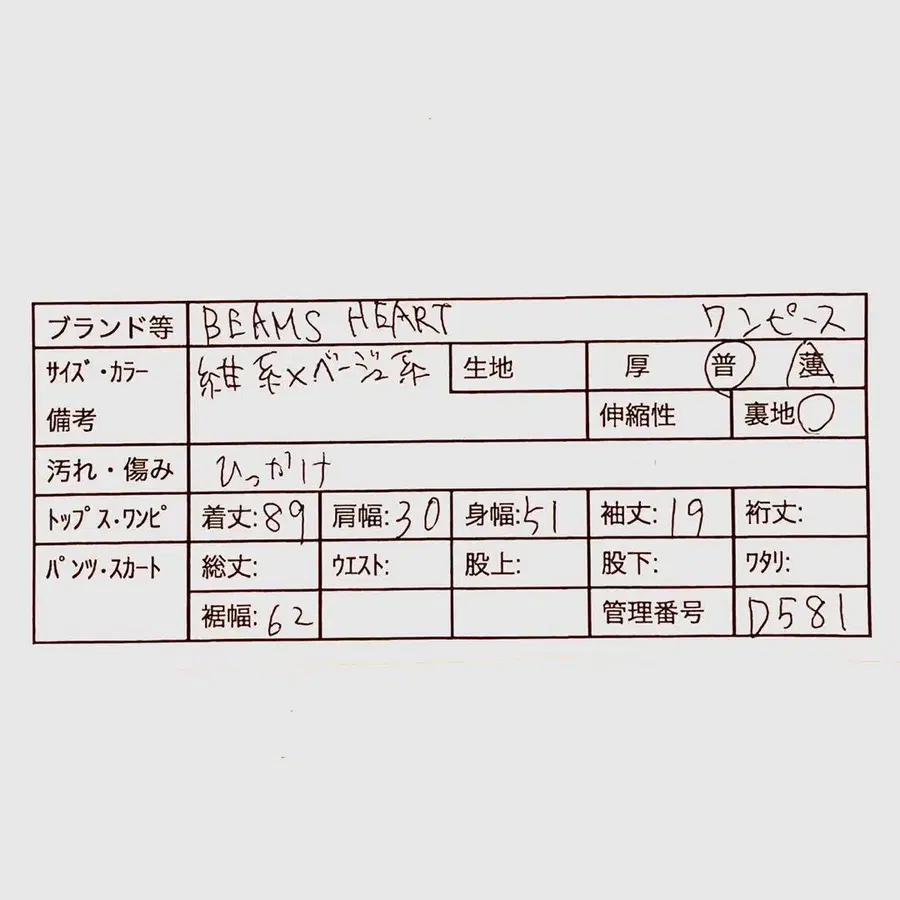 ブランド等 BEAMS HEART ワンピース
サイズ・カラー 紺系×ベージュ系 生地 厚 普 薄
備考 伸縮性 裏地○
汚れ・傷み ひっかけ
トップス・ワンピ 着丈:89 肩幅:30 身幅:51 袖丈:19 裄丈:
パンツ・スカート 総丈: ウエスト: 股上: 股下: ワタリ:
裾幅:62 管理番号 D581